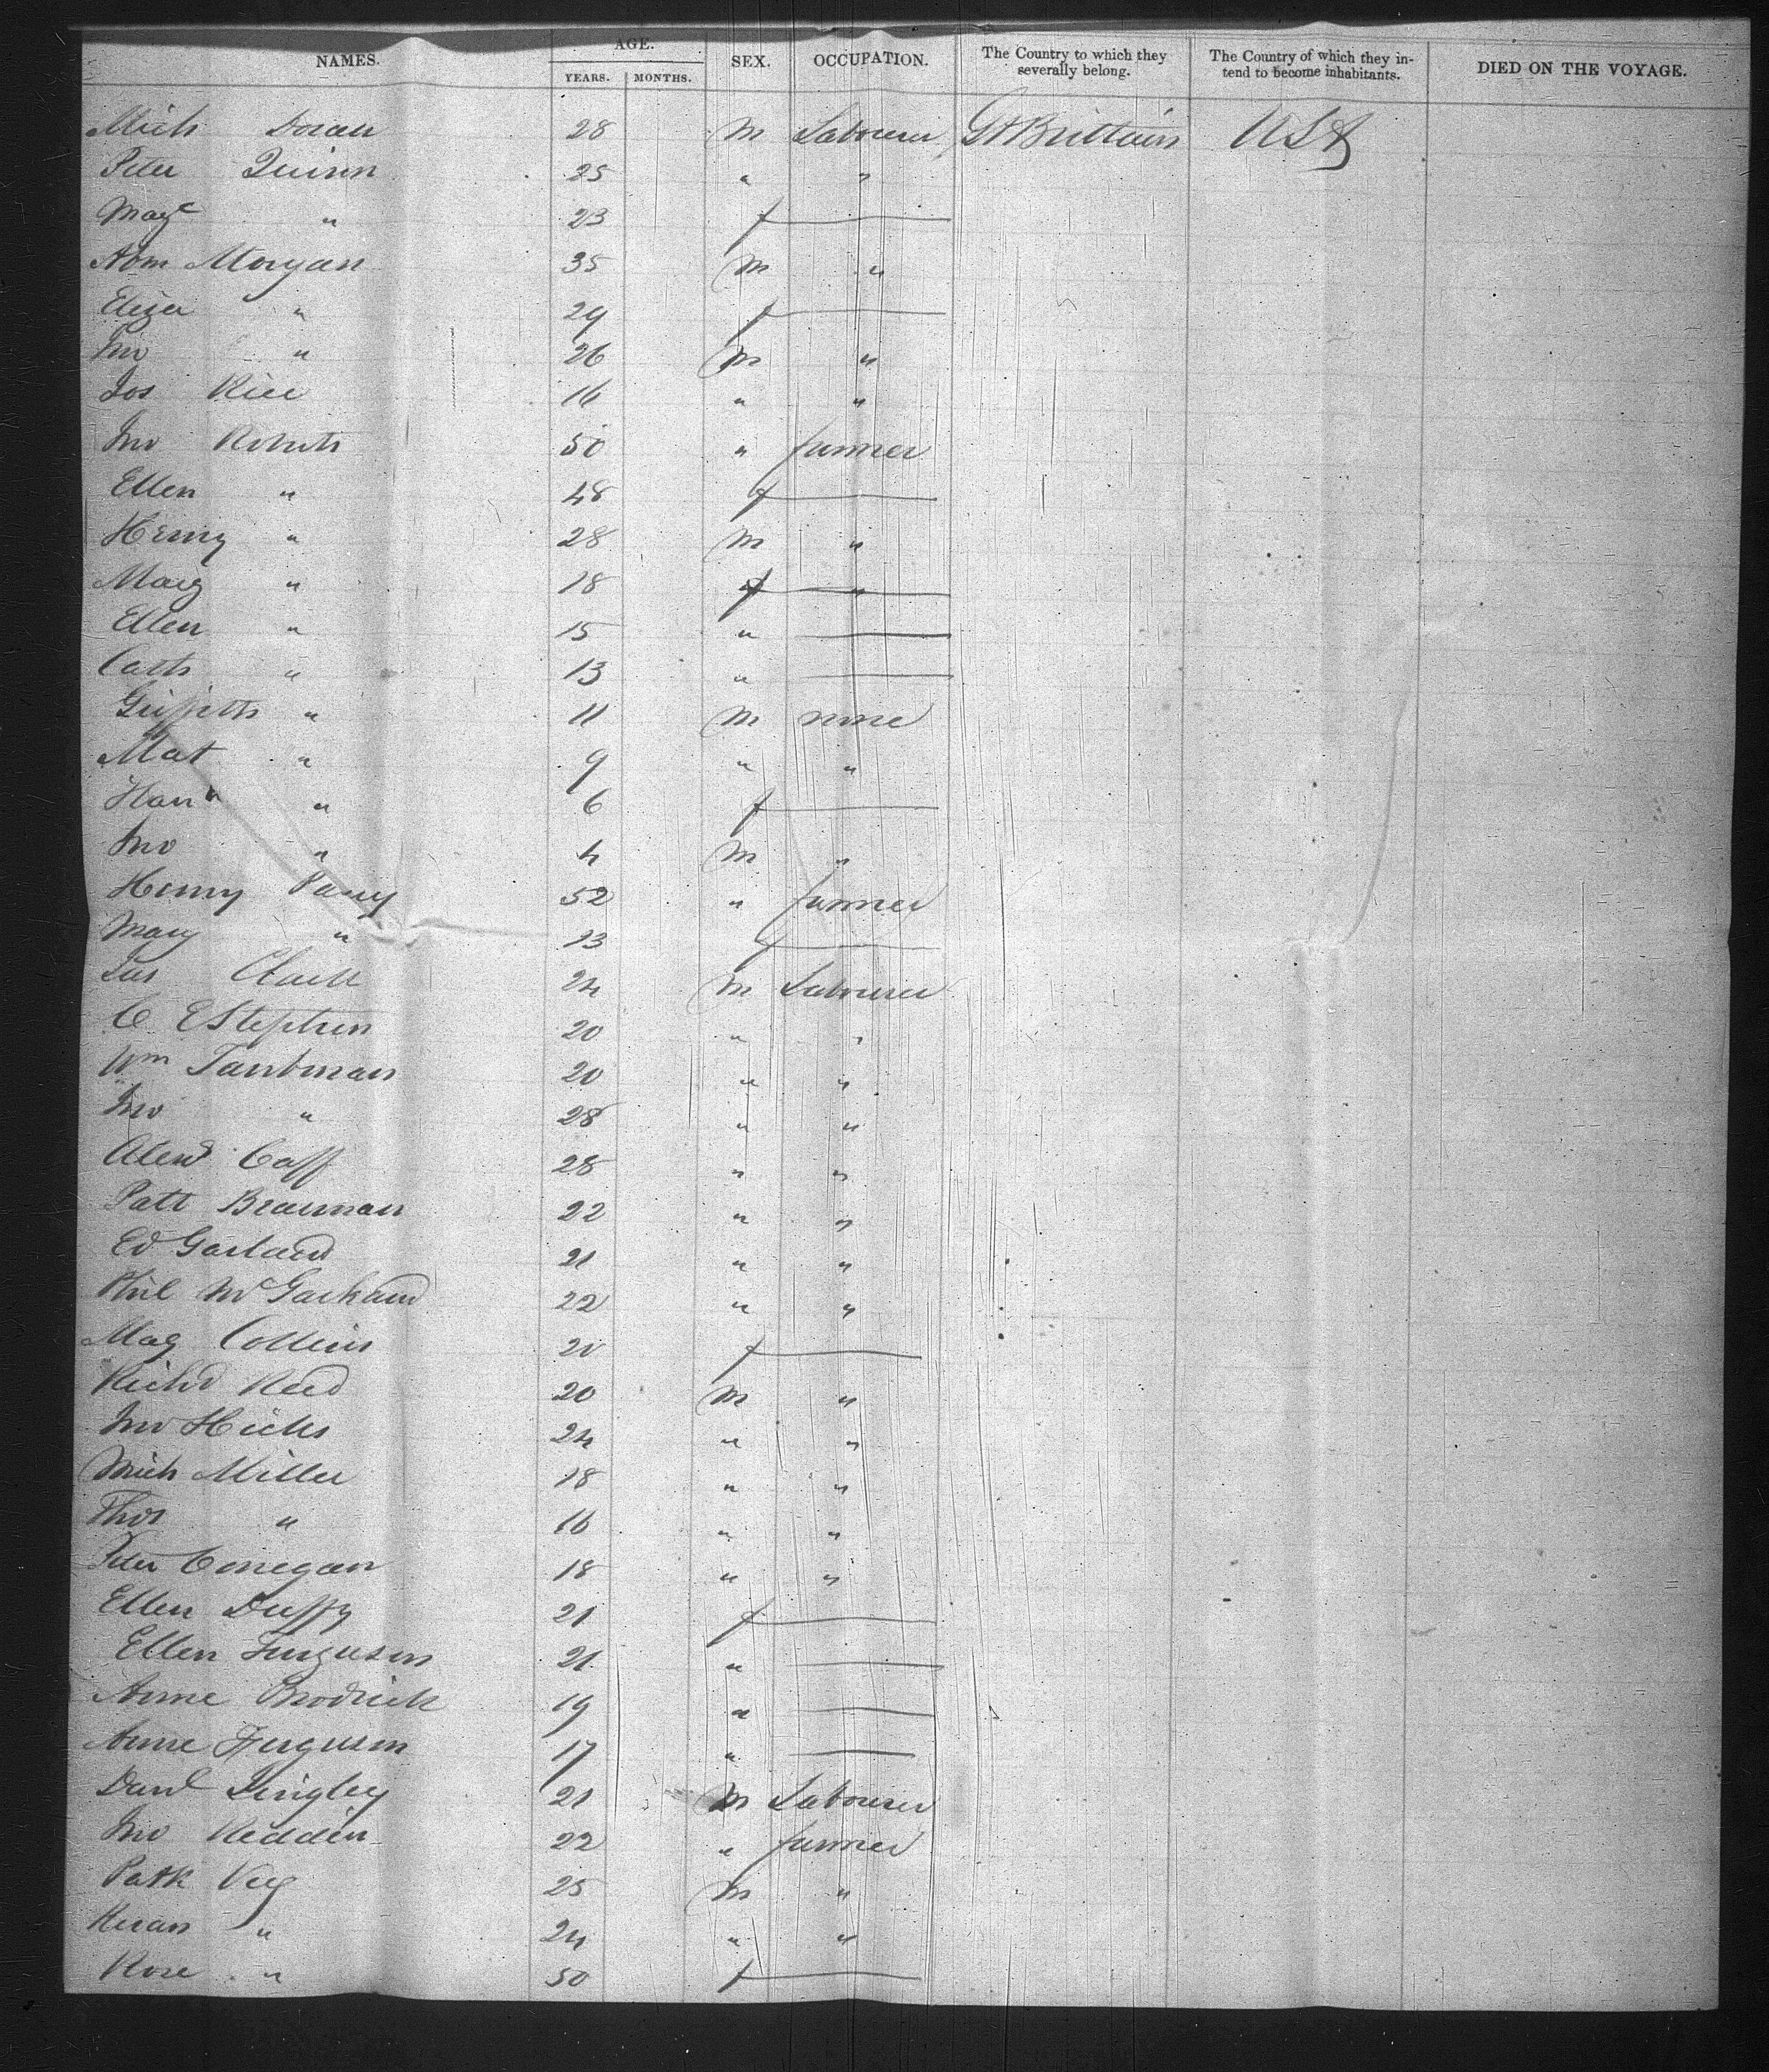 NAMES. AGE. SEX. OCCUPATION. The Country to which they severally belong. The Country of which they intend to become inhabitants. DIED ON THE VOYAGE.
YEARS. MONTHS.
Mich Doran 28 M Labourer Gt Brittain USA
Peter Quinn 25 " "
Magt " 23 f
Abm Morgan 35 M "
Eliza " 29 f
Jno " 26 M "
Jos Rice 16 " "
Jno Roberts 50 " farmer
Ellen " 48 f
Henry " 28 M "
Marg " 18 f "
Ellen " 15 "
Cath " 13 "
Griffeth " 11 M none
Mat " 9 " "
Han " 6 f
Jno " 4 M "
Henry Parry 52 " farmer
Mary " 13 f
Jas Clark 24 M Labourer
C E Stephen 20 " "
Wm Tautman 20 " "
Jno " 28 " "
Alexd Caff 28 " "
Patt Brannan 22 " "
Ed Garland 21 " "
Phil 22 " "
Mag Collins 20 f
Richd Reed 20 M "
Jno Hicks 24 " "
Mich Miller 18 " "
Thos " 16 " "
Peter Conegan 18 " "
Ellen Duffy 21 f
Ellen Ferguson 21 "
Anne Brodrick 19 "
Anne Ferguson 17 "
Danl Lingley 21 M Labourer
Jno Redden 22 " farmer
Patk 25 M "
Keran " 24 " "
Rose " 50 f